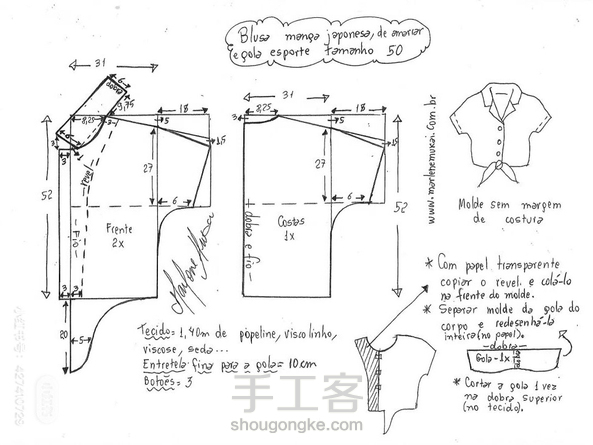 Blusa manga japonesa, de amarrar
e gola esporte tamanho 50
31
6
dobra
9,75
8,25
18
5
1,5
3
3
52
27
revel
6
Frente
2x
fio
3
3
20
5
31
8,25
18
5
1,5
3
27
52
6
Costas
1x
dobra e fio
www.marlenemukai.com.br
Molde sem margem
de costura
* Com papel transparente
copiar o revel e colá-lo
na frente do molde.
* Separar molde da gola do
corpo e redesenhá-la
inteira (no papel).
dobra
Gola - 1x
* Cortar a gola 1 vez
na dobra superior
(no tecido).
Tecido = 1,40m de popeline, viscolinho,
viscose, seda...
Entretela fina para a gola = 10cm
Botões = 3
手工客
shougongke.com